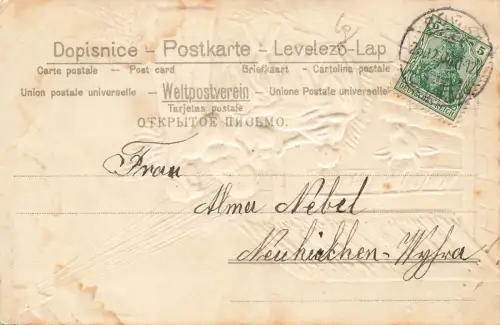 Dopisnice – Postkarte – Levelező-Lap
Carte postale – Post card Briefkaart – Cartolina postale
Union postale universelle – Weltpostverein – Unione Postale universale
Tarjetas postale
ОТКРЫТОЕ ПИСЬМО.
5 5
Frau
Alma Nebel
Neukirchen-Wyhra